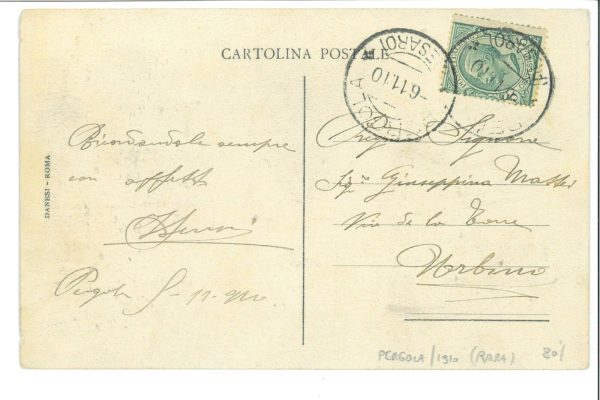 CARTOLINA POSTALE
PERGOLA (PESARO)
-6.11.10
Ricordandola sempre
con affetto
Pergola 5-11-910
Signore
Giuseppina Mattei
Via de la Torre
Urbino
DANESI - ROMA
PERGOLA/1910 (RARA) 80/